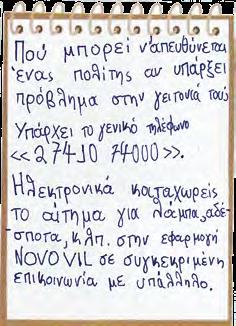 Πού μπορεί ν'απευθύνεται
ένας πολίτης αν υπάρξει
πρόβλημα στην γειτονιά τους
Υπάρχει το γενικό τηλέφωνο
<<27410 74000>>.
Ηλεκτρονικά καταχωρείς
το αίτημα για λάμπα, αδέ-
σποτα, κλπ. στην εφαρμογή
NOVOVIL σε συγκεκριμένη
επικοινωνία με υπάλληλο.